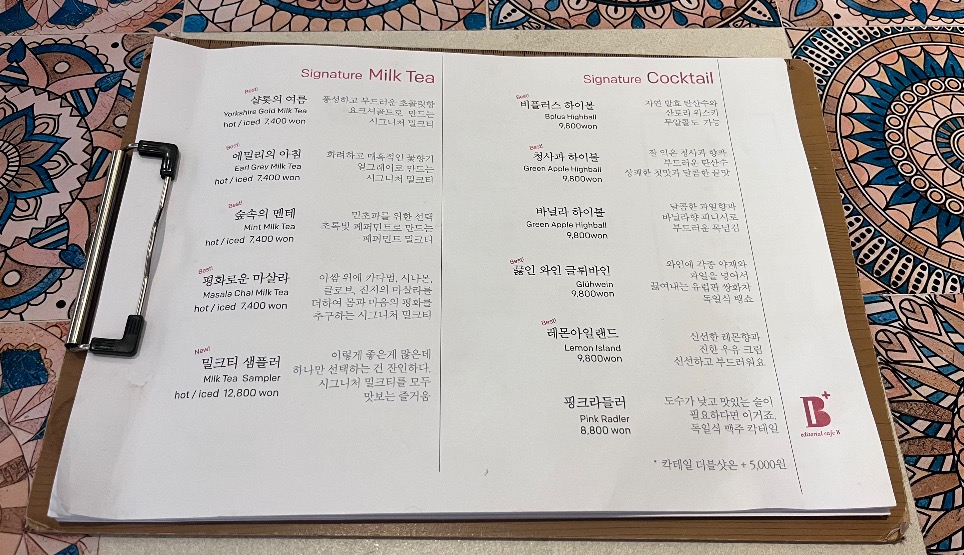 Signature Milk Tea
Best!
샬롯의 여름
Yorkshire Gold Milk Tea
hot / iced 7,400 won
풍성하고 부드러운 초콜릿향
요크셔골드로 만드는
시그니처 밀크티
Best!
에밀리의 아침
Earl Grey Milk Tea
hot / iced 7,400 won
화려하고 매혹적인 꽃향기
얼그레이로 만드는
시그니처 밀크티
Best!
숲속의 멘테
Mint Milk Tea
hot / iced 7,400 won
민초파를 위한 선택
초록빛 페퍼민트로 만드는
페퍼민트 밀크티
Best!
평화로운 마살라
Masala Chai Milk Tea
hot / iced 7,400 won
아쌈 위에 카다멈, 시나몬,
클로브, 진저의 마살라를
더하여 몸과 마음의 평화를
추구하는 시그니처 밀크티
New!
밀크티 샘플러
Milk Tea Sampler
hot / iced 12,800 won
이렇게 좋은게 많은데
하나만 선택하는 건 잔인하다.
시그니처 밀크티를 모두
맛보는 즐거움
Signature Cocktail
Best!
비플러스 하이볼
Bplus Highball
9,800won
자연 발효 탄산수와
산토리 위스키
무알콜도 가능
Best!
청사과 하이볼
Green Apple Highball
9,800won
잘 익은 청사과 향과
부드러운 탄산수
상쾌한 첫맛과 달콤한 끝맛
바닐라 하이볼
Green Apple Highball
9,800won
달콤한 과일향과
바닐라향 피니시로
부드러운 목넘김
Best!
끓인 와인 글뤼바인
Glühwein
9,800won
와인에 각종 약재와
과일을 넣어서
끓여내는 유럽판 쌍화차
독일식 뱅쇼
Best!
레몬아일랜드
Lemon Island
9,800won
신선한 레몬향과
진한 우유 크림
신선하고 부드러워요
핑크라들러
Pink Radler
8,800 won
도수가 낮고 맛있는 술이
필요하다면 이거죠.
독일식 맥주 칵테일
* 칵테일 더블샷은 + 5,000원
B+
editorial cafe B